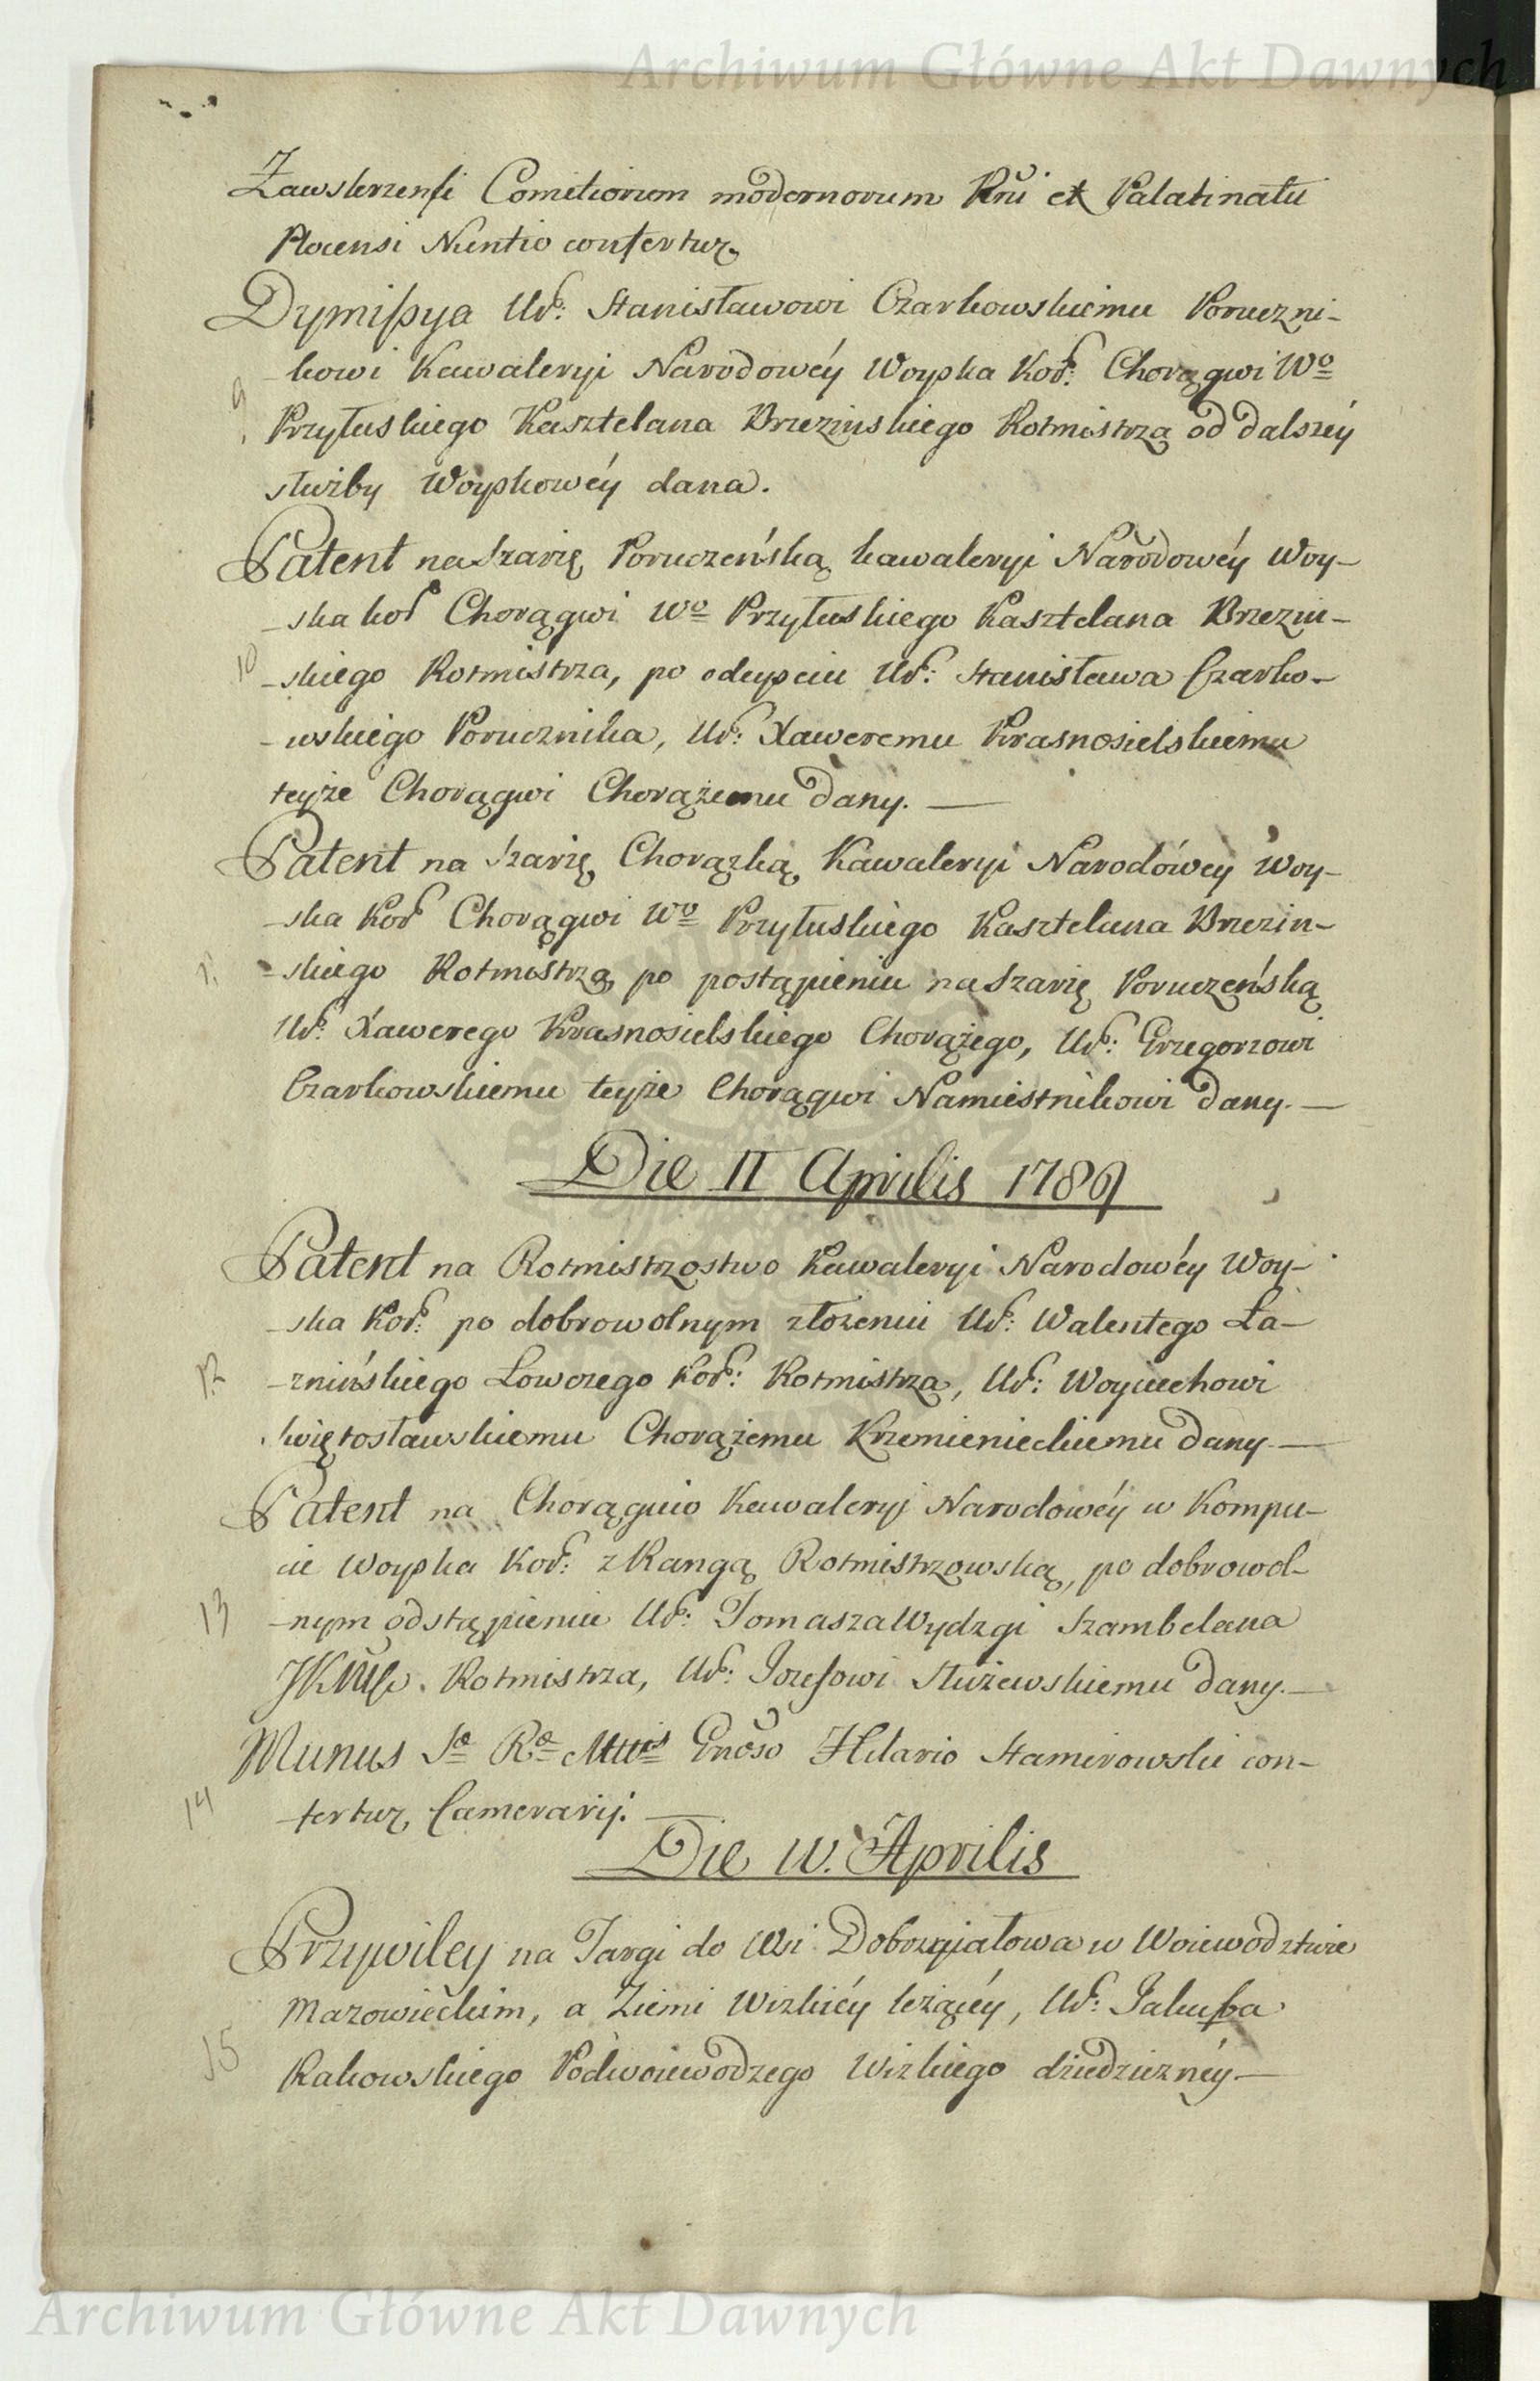 Archiwum Główne Akt Dawnych
Zawskrzensi Comitiorum modernorum Rni et Palatinatu
Plocensi Nuntio confertur.
Dymissya Ur: Stanisławowi Czarkowskiemu Poruczni-
-kowi Kawaleryi Narodowéy Woyska Kor: Chorągwi Wo
9
Przyłuskiego Kasztelana Brzezinskiego Rotmistrza od dalszéy
służby Woyskowéy dana.
Patent na Szarżę Poruczeńską kawaleryi Narodowéy Woy-
-ska kor Chorągwi Wo Przyłuskiego Kasztelana Brzezin-
10
-skiego Rotmistrza, po odeyściu Ur: Stanisława Czarko-
-wskiego Porucznika, Ur: Xaweremu Krasnosielskiemu
teyże Chorągwi Chorążemu dany. —
Patent na Szarżę Chorązką Kawaleryi Narodówey Woy-
-ska Kor Chorągwi Wo Przyłuskiego Kasztelana Brzezin-
11
-skiego Rotmistrza po postąpieniu na Szarżę Poruczeńską
Ur: Xawerego Krasnosielskiego Chorążego, Ur: Grzegorzowi
Czarkowskiemu teyże Chorągwi Namiestnikowi dany. —
Die II Aprilis 1789
Patent na Rotmistrzostwo Kawaleryi Narodowéy Woy-
-ska Kor: po dobrowolnym złożeniu Ur: Walentego Ła-
12
-znińskiego Łowczego Kor: Rotmistrza, Ur: Woyciechowi
Swiętosławskiemu Chorążemu Krzemienieckiemu dany —
Patent na Chorągwio Kawaleryi Narodowéy w Kompu-
-cie Woyska Kor: z Rangą Rotmistrzowską, po dobrowol-
13
-nym odstąpieniu Ur: Tomasza Wydzgi Szambelana
JKMsc. Rotmistrza, Ur: Jozefowi Służewskiemu dany. —
Munus Sae Rae Mttis Gnoso Hilario Stamirowski con-
14
-fertur Camerarij. —
Die IV. Aprilis
Przywiley na Targi do Wsi Dobrzyiałowa w Woiewodztwie
Mazowieckim, a Ziemi Wizkiéy leżącéy, Ur: Jakuba
15
Rakowskiego Podwoiewodzego Wizkiego dziedziznéy —
Archiwum Główne Akt Dawnych